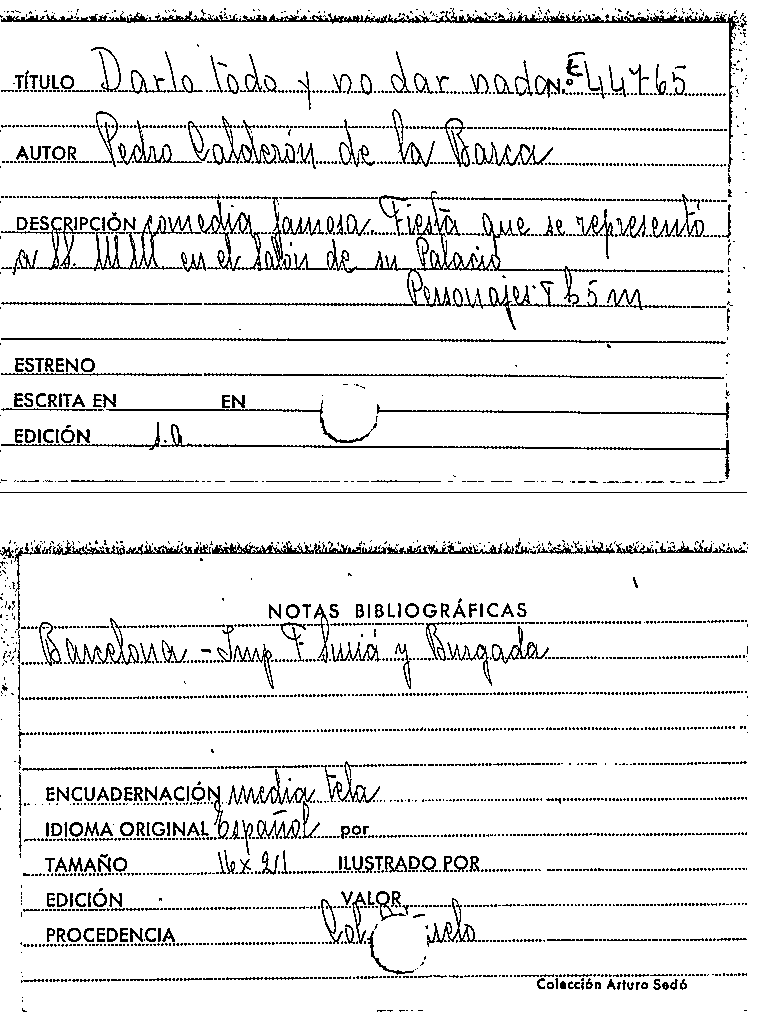 TÍTULO Darlo todo y no dar nada N.º E 44765
AUTOR Pedro Calderón de la Barca
DESCRIPCIÓN comedia famosa. Fiesta que se representó
a SS. MM en el Salón de su Palacio
Personajes
ESTRENO
ESCRITA EN EN
EDICIÓN s.a
NOTAS BIBLIOGRÁFICAS
Barcelona - Imp F Suriá y Burgada
ENCUADERNACIÓN media tela
IDIOMA ORIGINAL Español por
TAMAÑO 16 x 21 ILUSTRADO POR
EDICIÓN VALOR
PROCEDENCIA Col
Colección Arturo Sedó